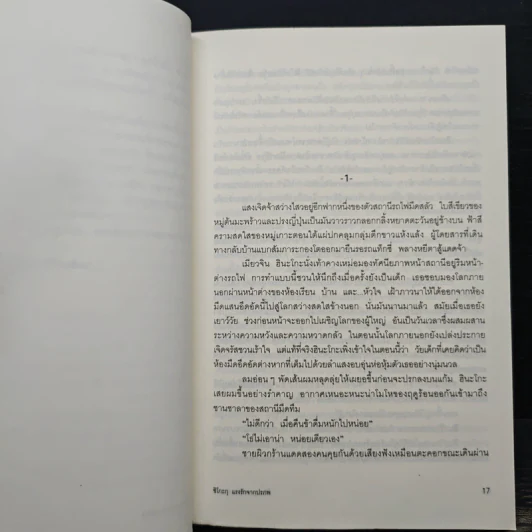 -1-
แสงเจิดจ้าสว่างไสวอยู่อีกฟากหนึ่งของตัวสถานีรถไฟมืดสลัว ใบสีเขียวของ
หมู่ต้นมะพร้าวและปรงญี่ปุ่นเป็นมันวาวราวกลอกกลิ้งหยาดตะวันอยู่ข้างบน ฟ้าสี
ครามสดใสของหมู่เกาะตอนใต้แผ่ปกคลุมกลุ่มตึกขาวแห้งแล้ง ผู้โดยสารที่เดิน
ทางกลับบ้านแบกสัมภาระกองโตออกมายืนรอรถแท็กซี่ พลางหยีตาสู้แดดจ้า
เมียวจิน ฮินะโกะนั่งเท้าคางเหม่อมองทัศนียภาพหน้าสถานีอยู่ริมหน้า-
ต่างรถไฟ การทำแบบนี้ชวนให้นึกถึงเมื่อครั้งยังเป็นเด็ก เธอชอบมองโลกภาย
นอกผ่านหน้าต่างของห้องเรียน บ้าน และ...หัวใจ เฝ้าภาวนาให้ได้ออกจากห้อง
มืดแสนอึดอัดนี้ไปสู่โลกสว่างสดใสข้างนอก นั่นมันนานมาแล้ว สมัยเมื่อเธอยัง
เยาว์วัย ช่วงก่อนหน้าจะออกไปเผชิญโลกของผู้ใหญ่ อันเป็นวันเวลาซึ่งผสมผสาน
ระหว่างความหวังและความหวาดกลัว ในตอนนั้นโลกภายนอกยังเปล่งประกาย
เจิดจรัสชวนเร้าใจ แต่แท้ที่จริงฮินะโกะเพิ่งเข้าใจในตอนนี้ว่า วัยเด็กที่เคยคิดว่าเป็น
ห้องมืดอึดอัดต่างหากที่เต็มไปด้วยลำแสงอบอุ่นห่อหุ้มตัวเธออย่างนุ่มนวล
ลมอ่อนๆ พัดเส้นผมหลุดลุ่ยให้เผยอขึ้นก่อนจะปรกลงบนแก้ม ฮินะโกะ
เสยผมขึ้นอย่างรำคาญ อากาศเหนอะหนะนำไมโหของฤดูร้อนออกันเข้ามาถึง
ชานชาลาของสถานีมืดทึม
“ไม่ดีกว่า เมื่อคืนข้าดื่มหนักไปหน่อย”
“โธ่ไม่เอาน่า หน่อยเดียวเอง”
ชายผิวกร้านแดดสองคนคุยกันด้วยเสียงฟังเหมือนตะคอกขณะเดินผ่าน
ชิโกกุ แรงรักจากปรภพ 17